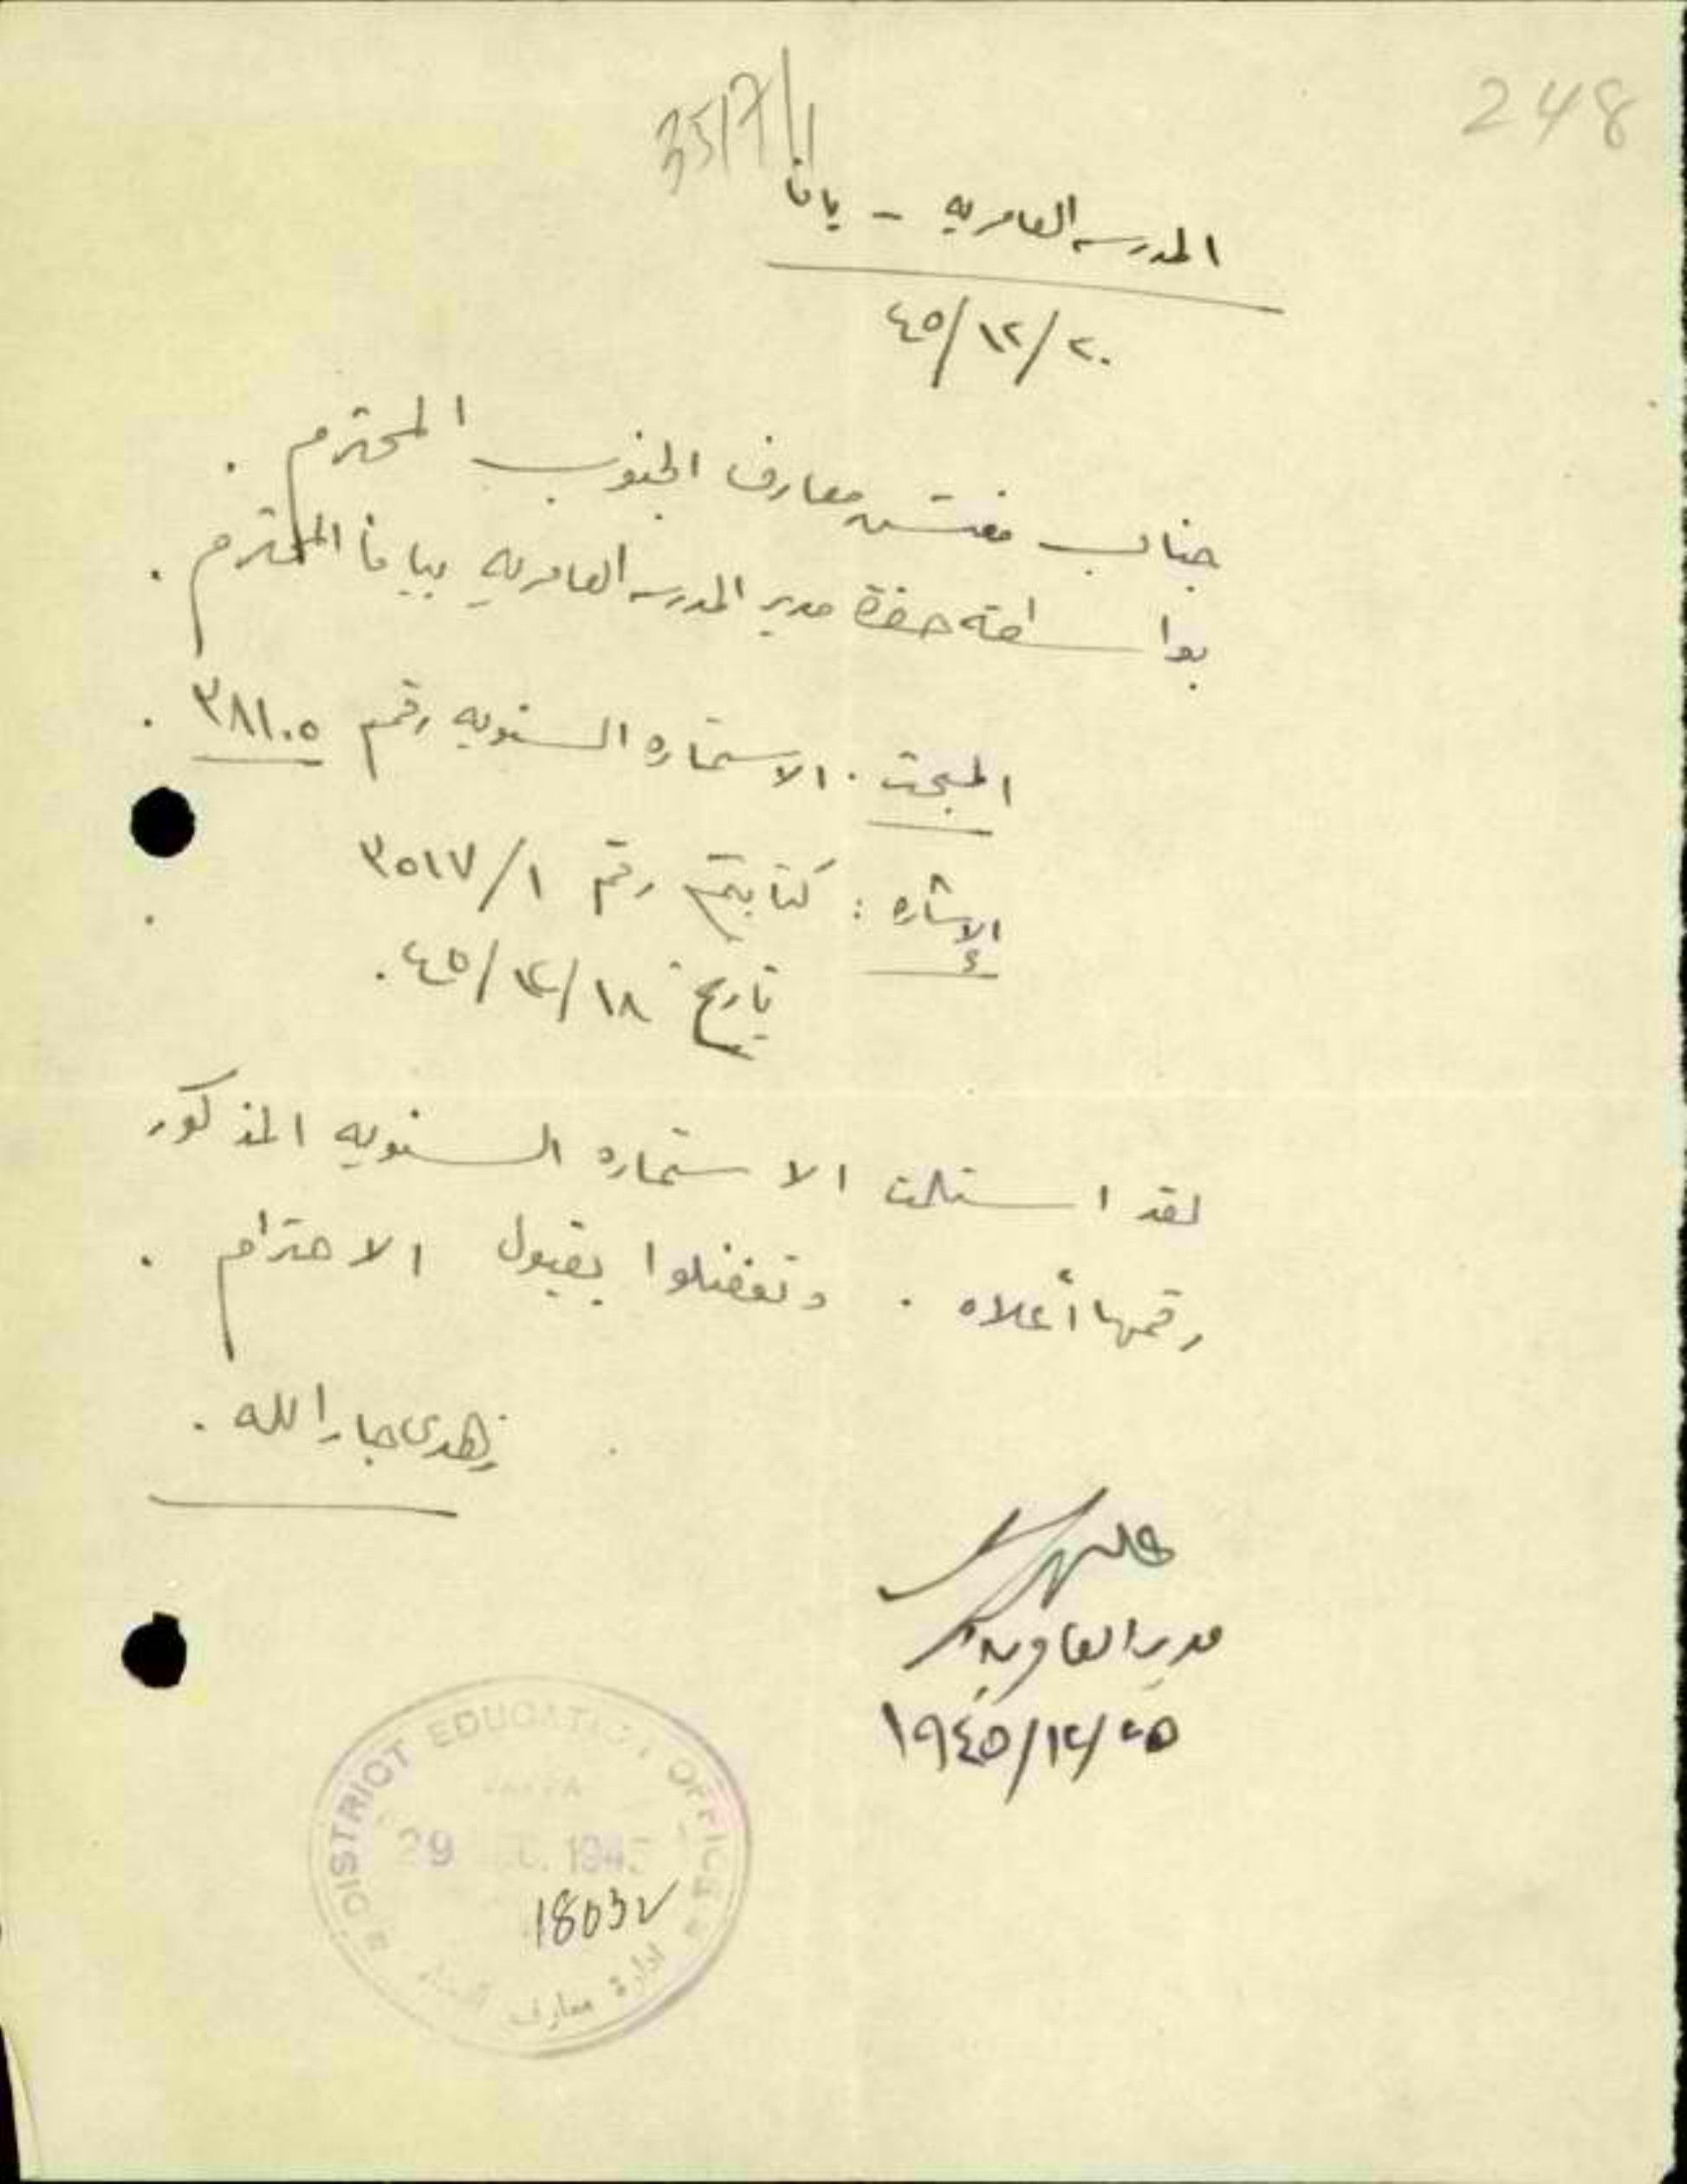 248
3517/1
المدرسه العامريه - يافا
٤٥/١٢/٢٠
جناب مفتش معارف الجنوب المحترم .
بواسطة حضرة مدير المدرسه العامريه بيافا المحترم .
المبحث . الاستماره السنويه رقم ٣٨١٠٥ .
الإشاره : كتابكم رقم ٣٥١٧/١
تاريخ ٤٥/١٢/١٨ .
لقد استلمت الاستماره السنويه المذكور
رقمها أعلاه . وتفضلوا بقبول الاحترام .
زهدي جار الله .
مدير العامرية
١٩٤٥/١٢/٢٥
DISTRICT EDUCATION OFFICE
JAFFA
29 1945
18032
ادارة معارف